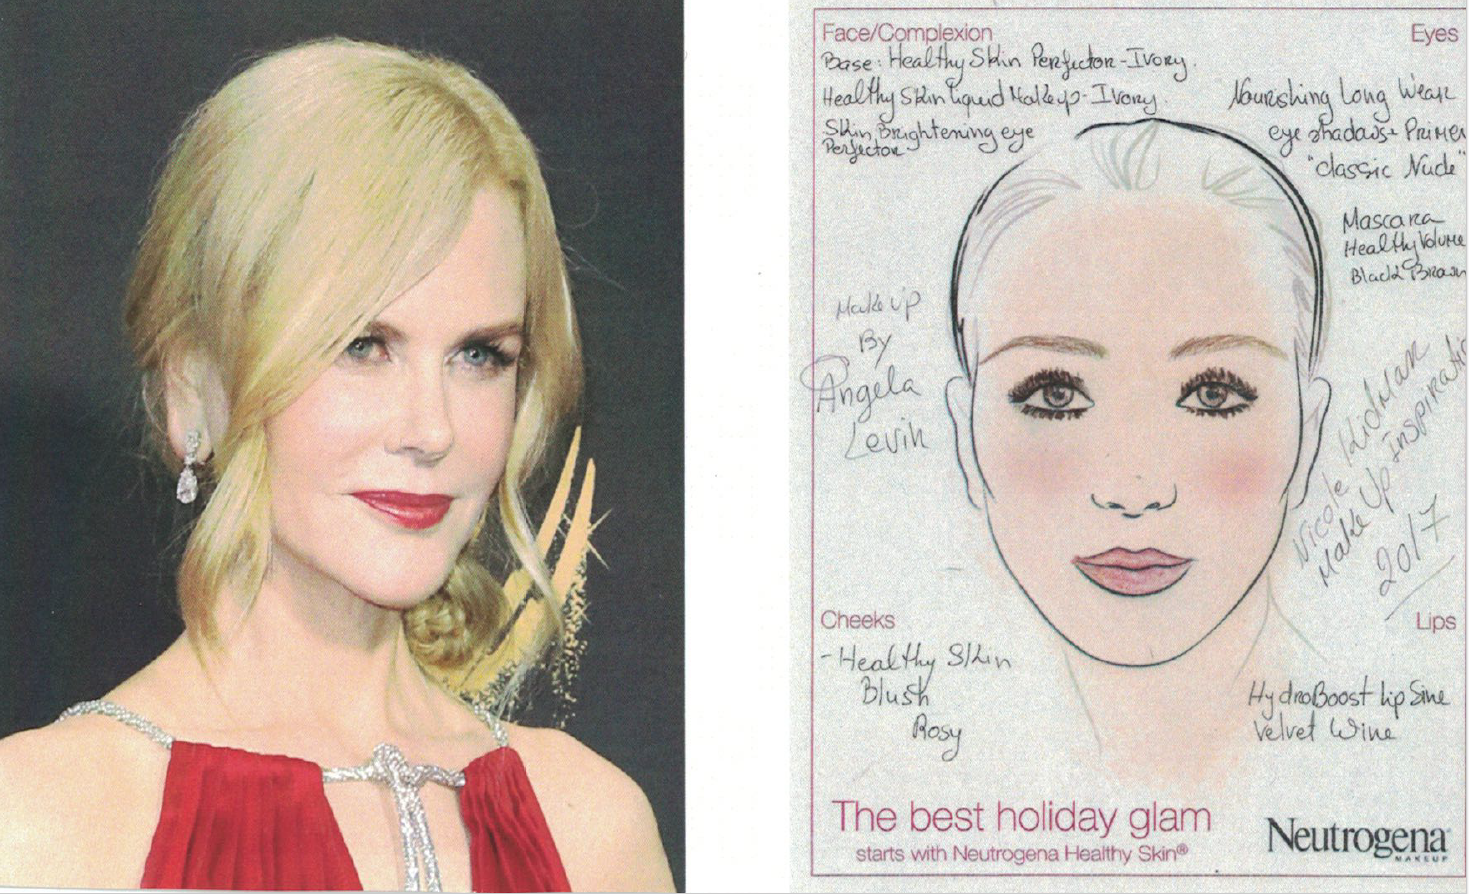 Face/Complexion
Base: Healthy Skin Perfector-Ivory.
Healthy Skin liquid Makeup-Ivory.
Skin Brightening eye
Perfector
Eyes
Nourishing Long Wear
eye shadows+ Primer
"classic Nude"
Mascara
Healthy Volume
Black Brown
Make up
By
Angela
Levin
Nicole Kidman
Make Up Inspiratio
2017
Cheeks
-Healthy Skin
Blush
Rosy
Lips
HydroBoost lip Sine
Velvet Wine
The best holiday glam
starts with Neutrogena Healthy Skin®
Neutrogena
MAKEUP